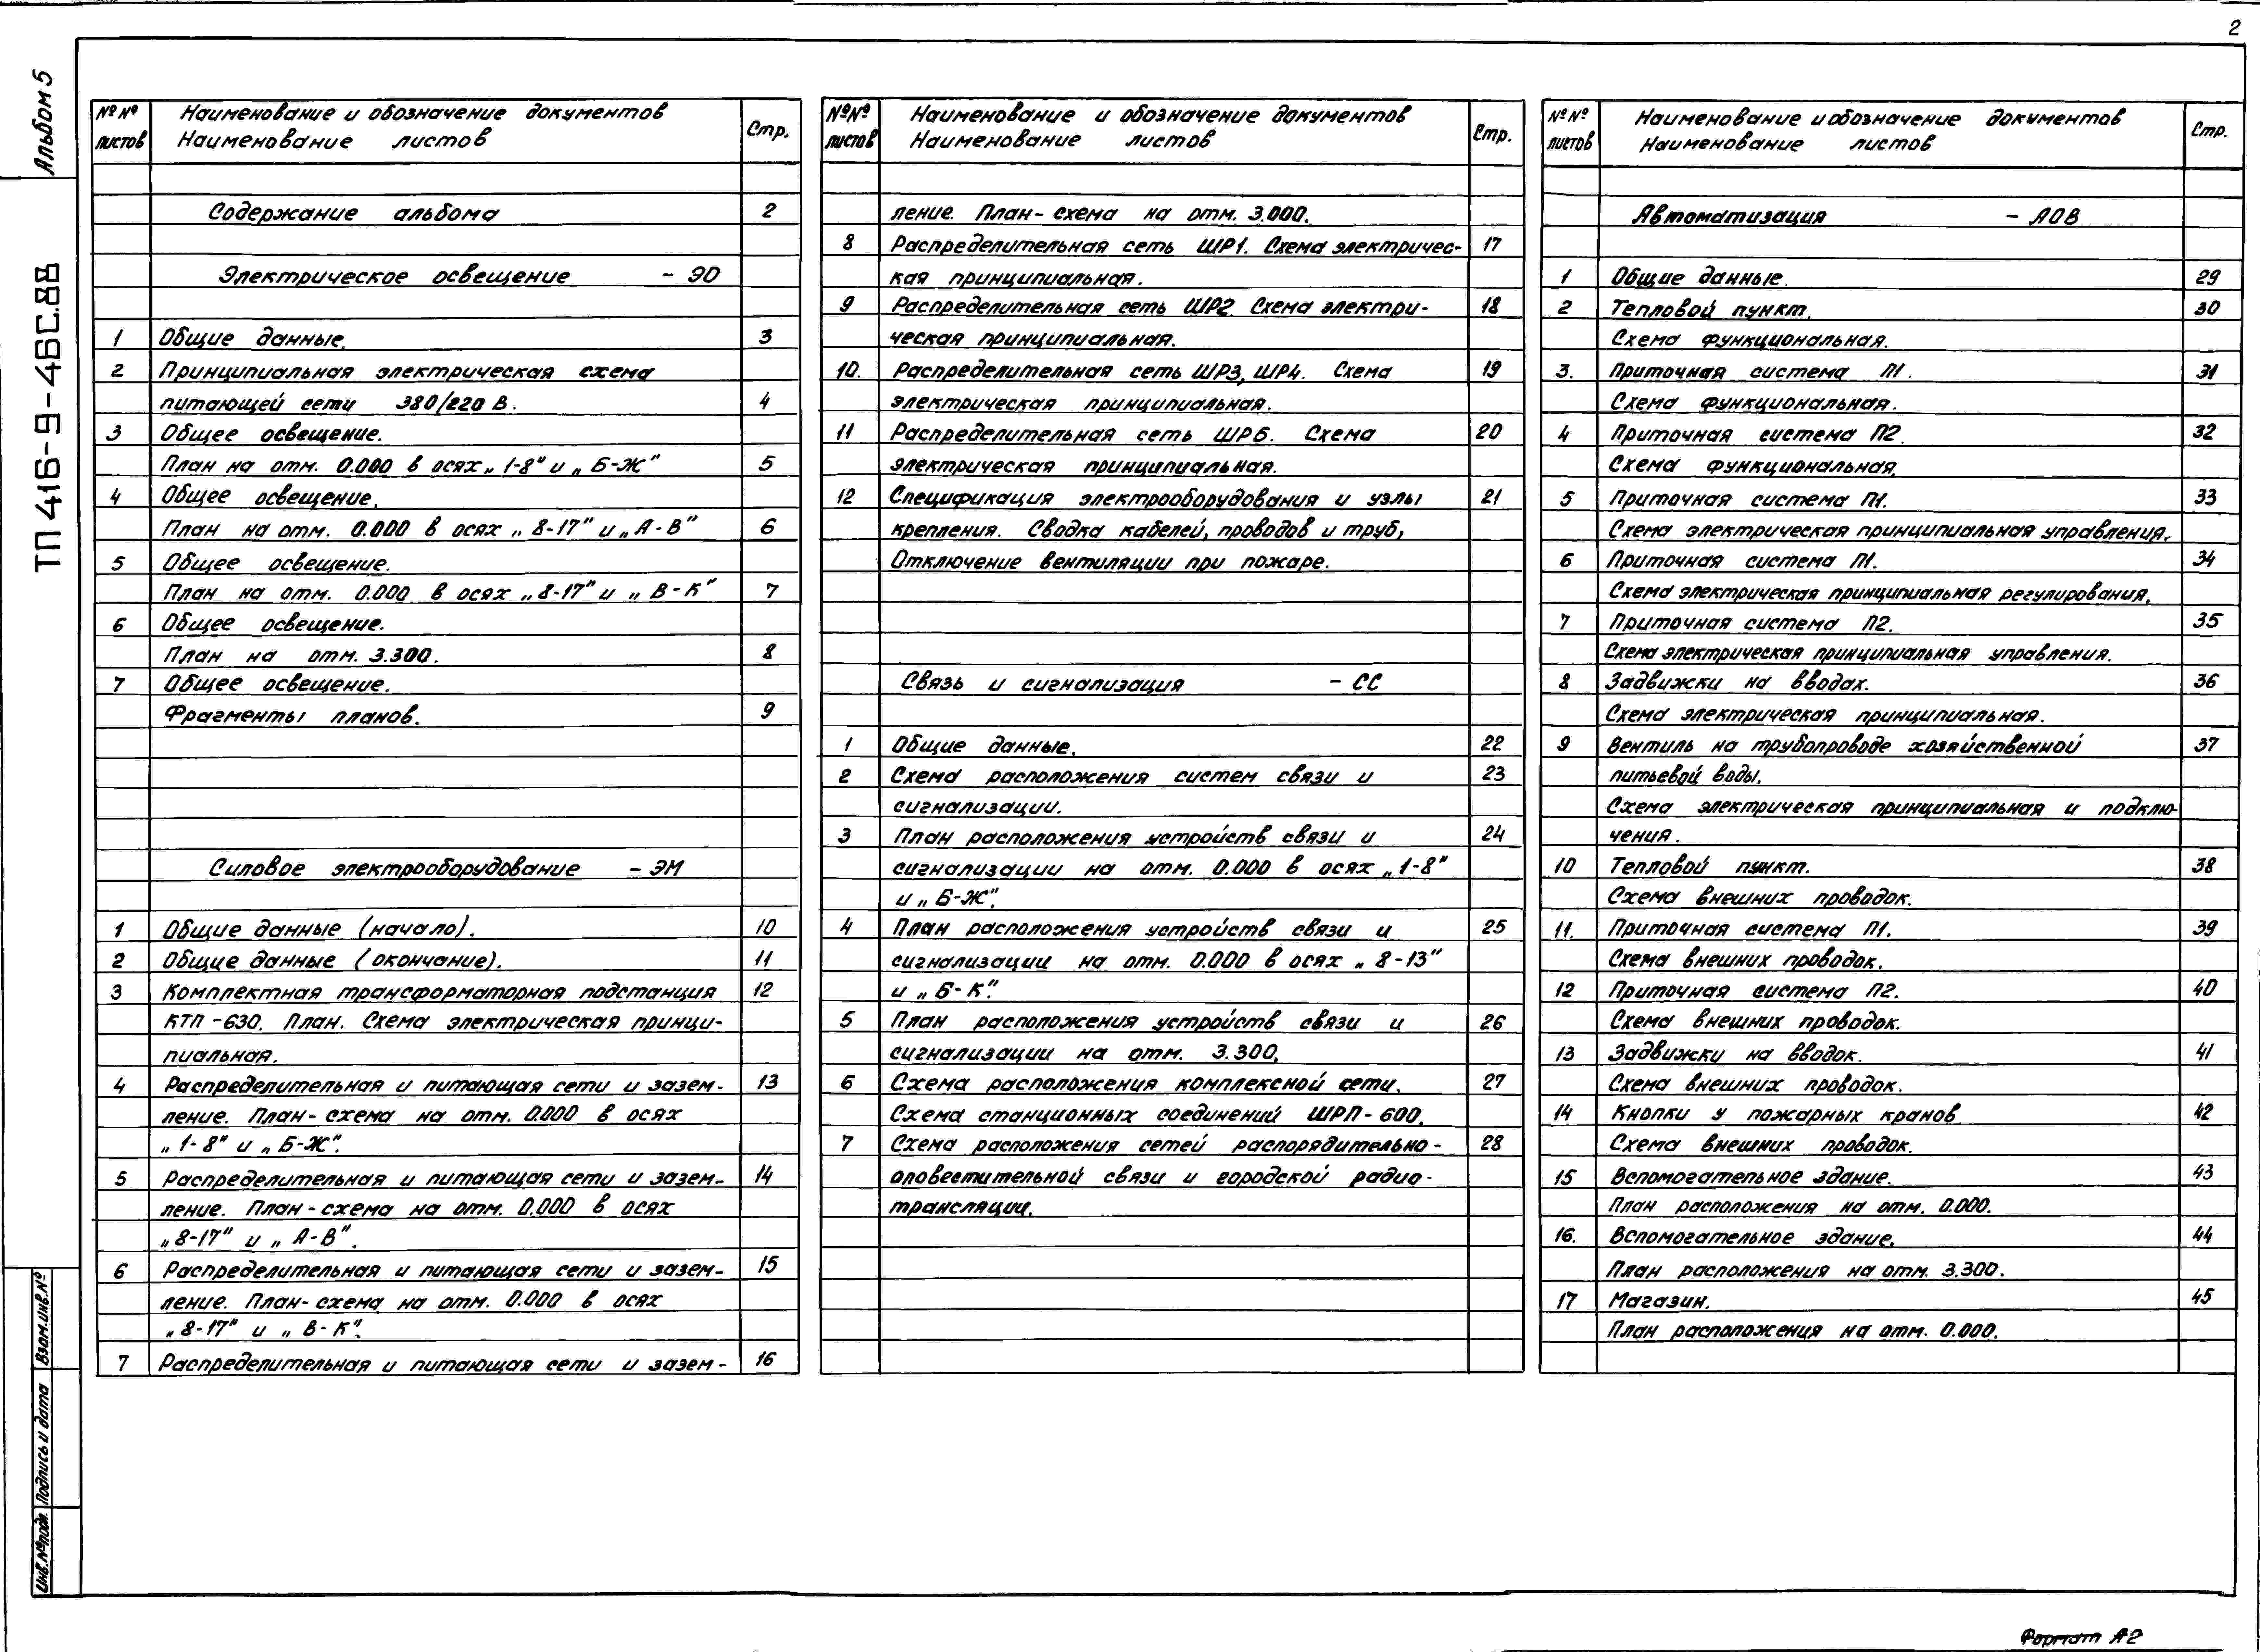 2
Альбом 5
ТП 416-9-46С.88
Взам.инв.№
Подпись и дата
Инв.№подл.
№№ листов
Наименование и обозначение документов
Наименование листов
Стр.
Содержание альбома 2
Электрическое освещение - ЭО
1 Общие данные. 3
2 Принципиальная электрическая схема
питающей сети 380/220 В. 4
3 Общее освещение.
План на отм. 0.000 в осях „1-8" и „Б-Ж" 5
4 Общее освещение.
План на отм. 0.000 в осях „8-17" и „А-В" 6
5 Общее освещение.
План на отм. 0.000 в осях „8-17" и „В-К" 7
6 Общее освещение.
План на отм. 3.300. 8
7 Общее освещение.
Фрагменты планов. 9
Силовое электрооборудование - ЭМ
1 Общие данные (начало). 10
2 Общие данные (окончание). 11
3 Комплектная трансформаторная подстанция 12
КТП-630. План. Схема электрическая принци-
пиальная.
4 Распределительная и питающая сети и зазем- 13
ление. План-схема на отм. 0.000 в осях
„1-8" и „Б-Ж".
5 Распределительная и питающая сети и зазем- 14
ление. План-схема на отм. 0.000 в осях
„8-17" и „А-В".
6 Распределительная и питающая сети и зазем- 15
ление. План-схема на отм. 0.000 в осях
„8-17" и „В-К".
7 Распределительная и питающая сети и зазем- 16
№№ листов
Наименование и обозначение документов
Наименование листов
Стр.
ление. План-схема на отм. 3.000.
8 Распределительная сеть ШР1. Схема электричес- 17
кая принципиальная.
9 Распределительная сеть ШР2. Схема электри- 18
ческая принципиальная.
10. Распределительная сеть ШР3, ШР4. Схема 19
электрическая принципиальная.
11 Распределительная сеть ШР5. Схема 20
электрическая принципиальная.
12 Спецификация электрооборудования и узлы 21
крепления. Сводка кабелей, проводов и труб,
Отключение вентиляции при пожаре.
Связь и сигнализация - СС
1 Общие данные. 22
2 Схема расположения систем связи и 23
сигнализации.
3 План расположения устройств связи и 24
сигнализации на отм. 0.000 в осях „1-8"
и „Б-Ж".
4 План расположения устройств связи и 25
сигнализации на отм. 0.000 в осях „8-13"
и „Б-К".
5 План расположения устройств связи и 26
сигнализации на отм. 3.300.
6 Схема расположения комплексной сети. 27
Схема станционных соединений ШРП-600.
7 Схема расположения сетей распорядительно- 28
оповестительной связи и городской радио-
трансляции.
№№ листов
Наименование и обозначение документов
Наименование листов
Стр.
Автоматизация - АОВ
1 Общие данные. 29
2 Тепловой пункт. 30
Схема функциональная.
3. Приточная система П1. 31
Схема функциональная.
4 Приточная система П2. 32
Схема функциональная.
5 Приточная система П1. 33
Схема электрическая принципиальная управления.
6 Приточная система П1. 34
Схема электрическая принципиальная регулирования.
7 Приточная система П2. 35
Схема электрическая принципиальная управления.
8 Задвижки на вводах. 36
Схема электрическая принципиальная.
9 Вентиль на трубопроводе хозяйственной 37
питьевой воды.
Схема электрическая принципиальная и подклю-
чения.
10 Тепловой пункт. 38
Схема внешних проводок.
11. Приточная система П1. 39
Схема внешних проводок.
12 Приточная система П2. 40
Схема внешних проводок.
13 Задвижки на вводох. 41
Схема внешних проводок.
14 Кнопки у пожарных кранов. 42
Схема внешних проводок.
15 Вспомогательное здание. 43
План расположения на отм. 0.000.
16. Вспомогательное здание. 44
План расположения на отм. 3.300.
17 Магазин. 45
План расположения на отм. 0.000.
Формат А2